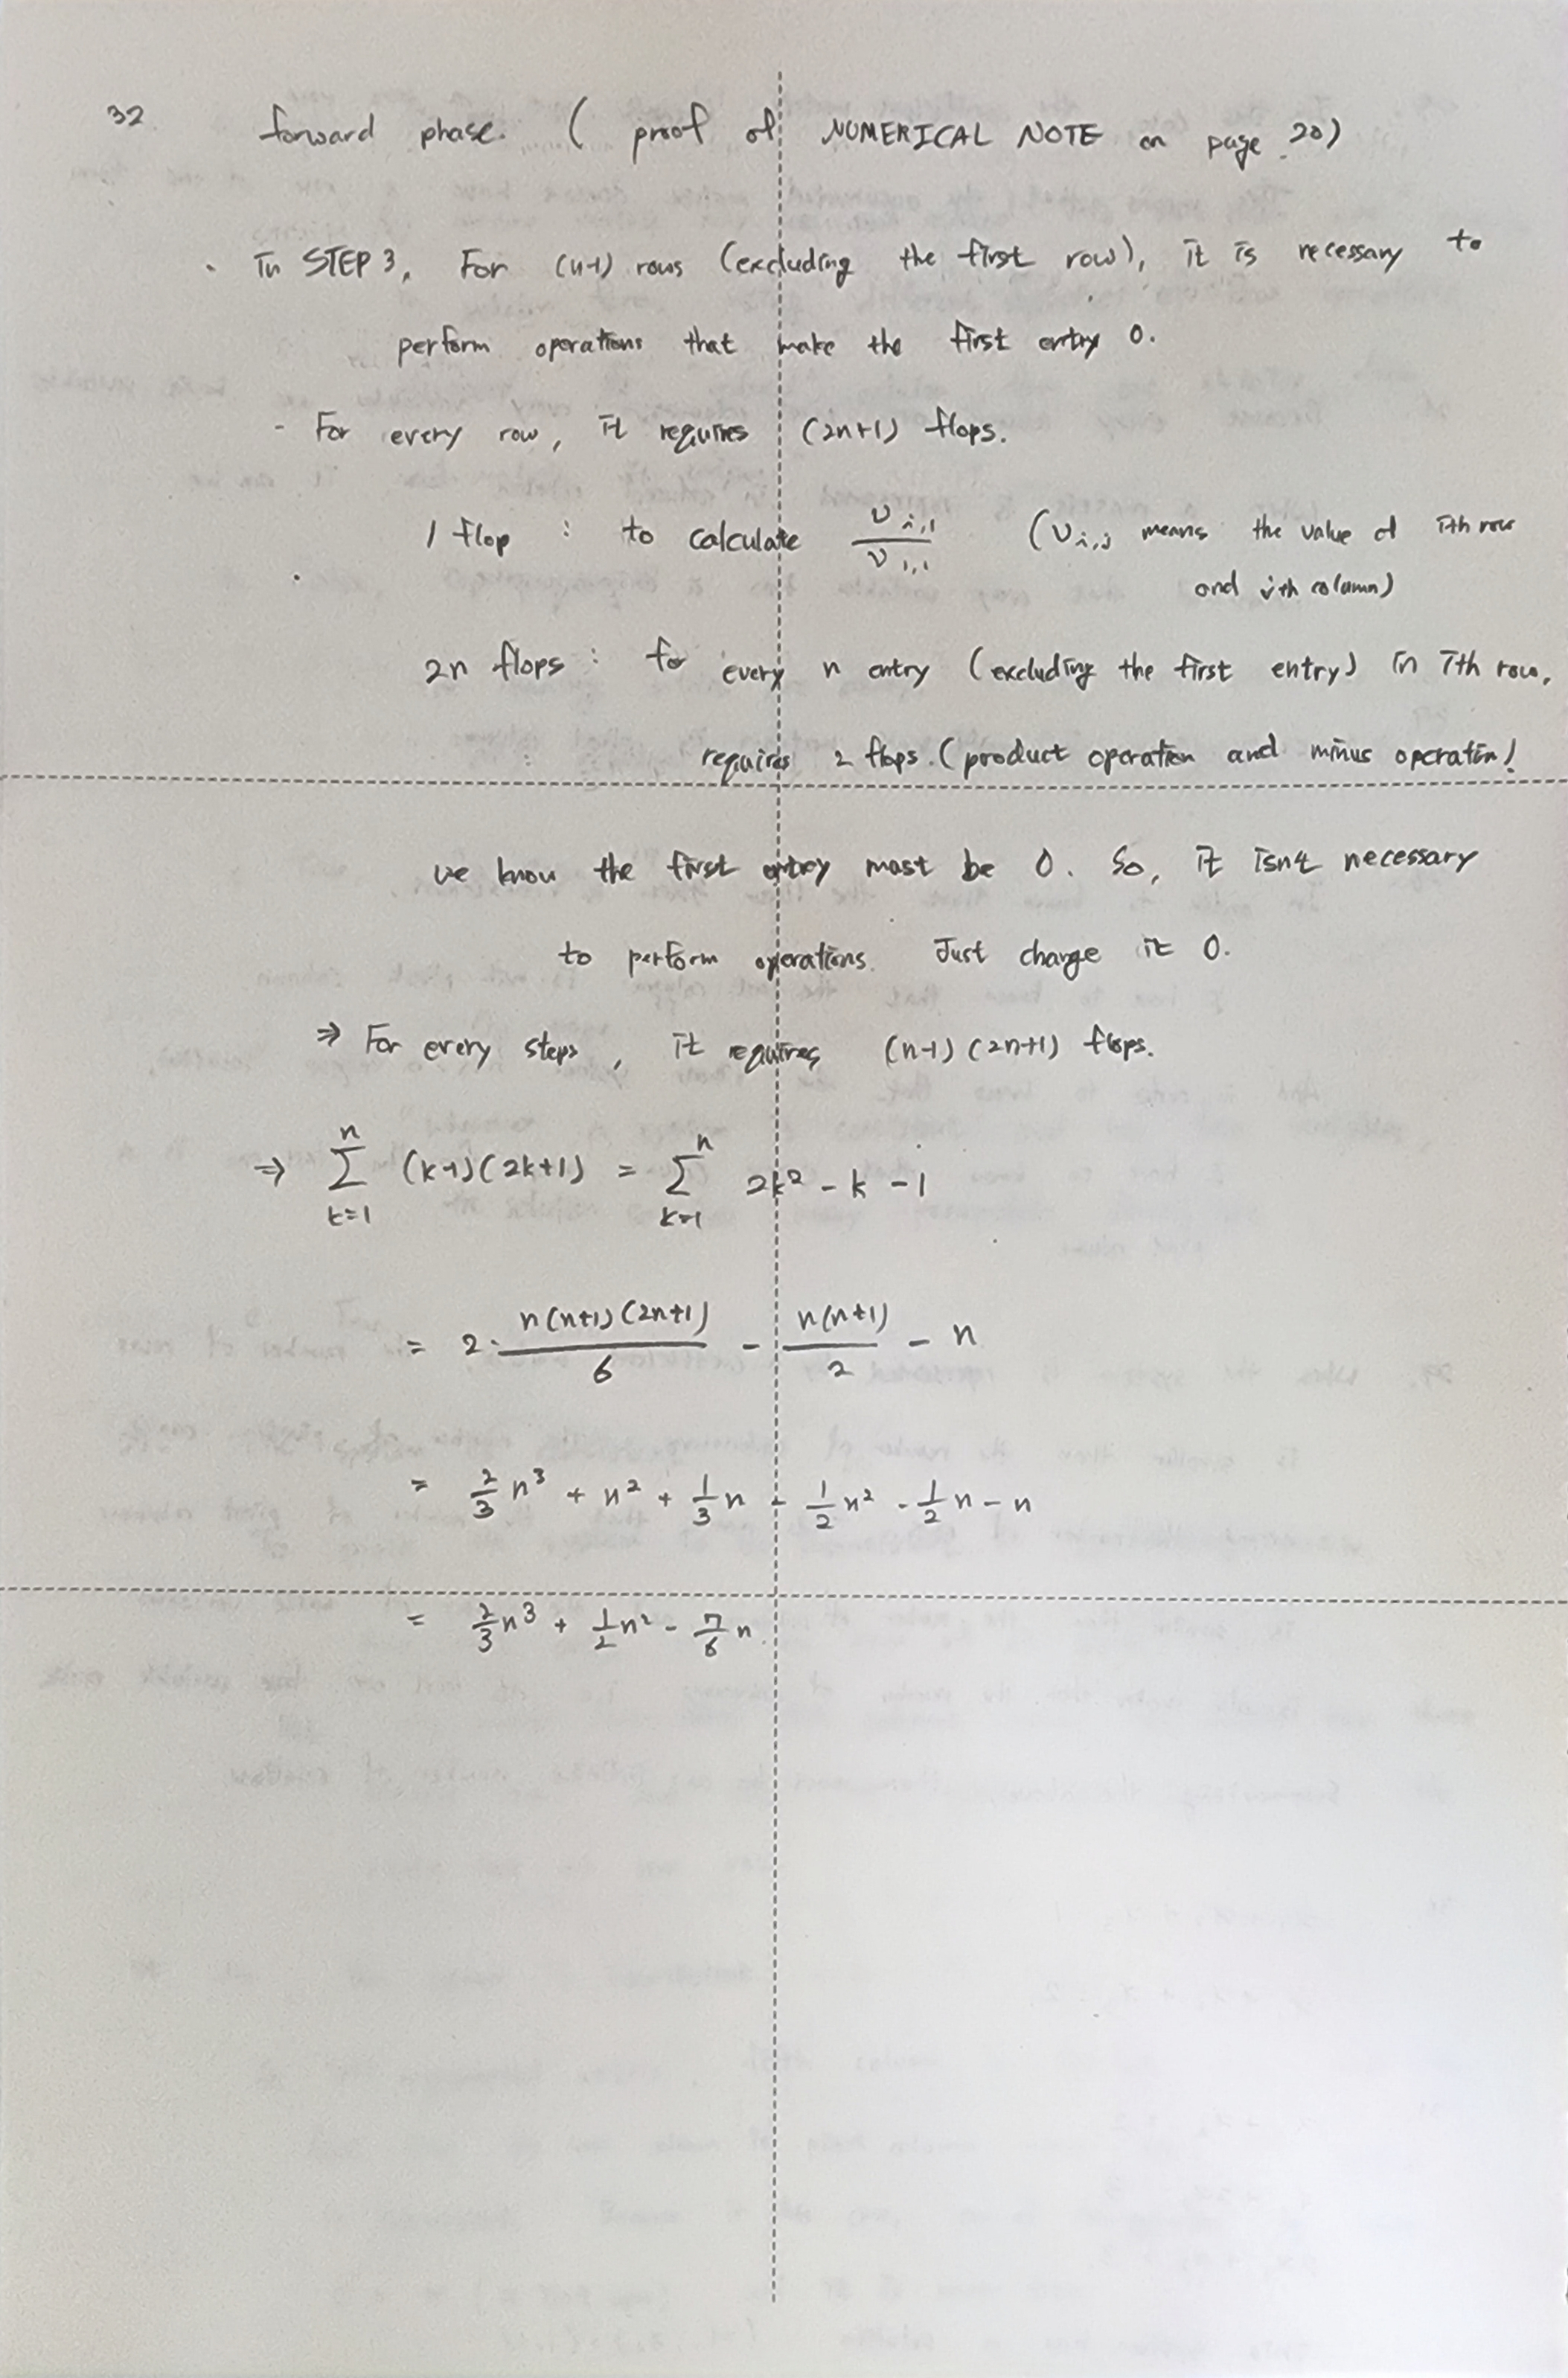 32 forward phase. ( proof of NUMERICAL NOTE on page 20)
· In STEP 3, For (n-1) rows (excluding the first row), it is necessary to
perform operations that make the first entry 0.
- For every row, it requires (2n+1) flops.
1 flop : to calculate v_{i,1} / v_{1,1} (v_{i,j} means the value of ith row
and jth column)
2n flops : for every n entry (excluding the first entry) in ith row,
requires 2 flops. (product operation and minus operation)
we know the first entry must be 0. So, it isn't necessary
to perform operations. Just change it 0.
⇒ For every steps, it requires (n-1)(2n+1) flops.
⇒ Σ_{k=1}^{n} (k-1)(2k+1) = Σ_{k=1}^{n} 2k² - k - 1
= 2 · n(n+1)(2n+1)/6 - n(n+1)/2 - n
= 2/3 n³ + n² + 1/3 n - 1/2 n² - 1/2 n - n
= 2/3 n³ + 1/2 n² - 7/6 n.